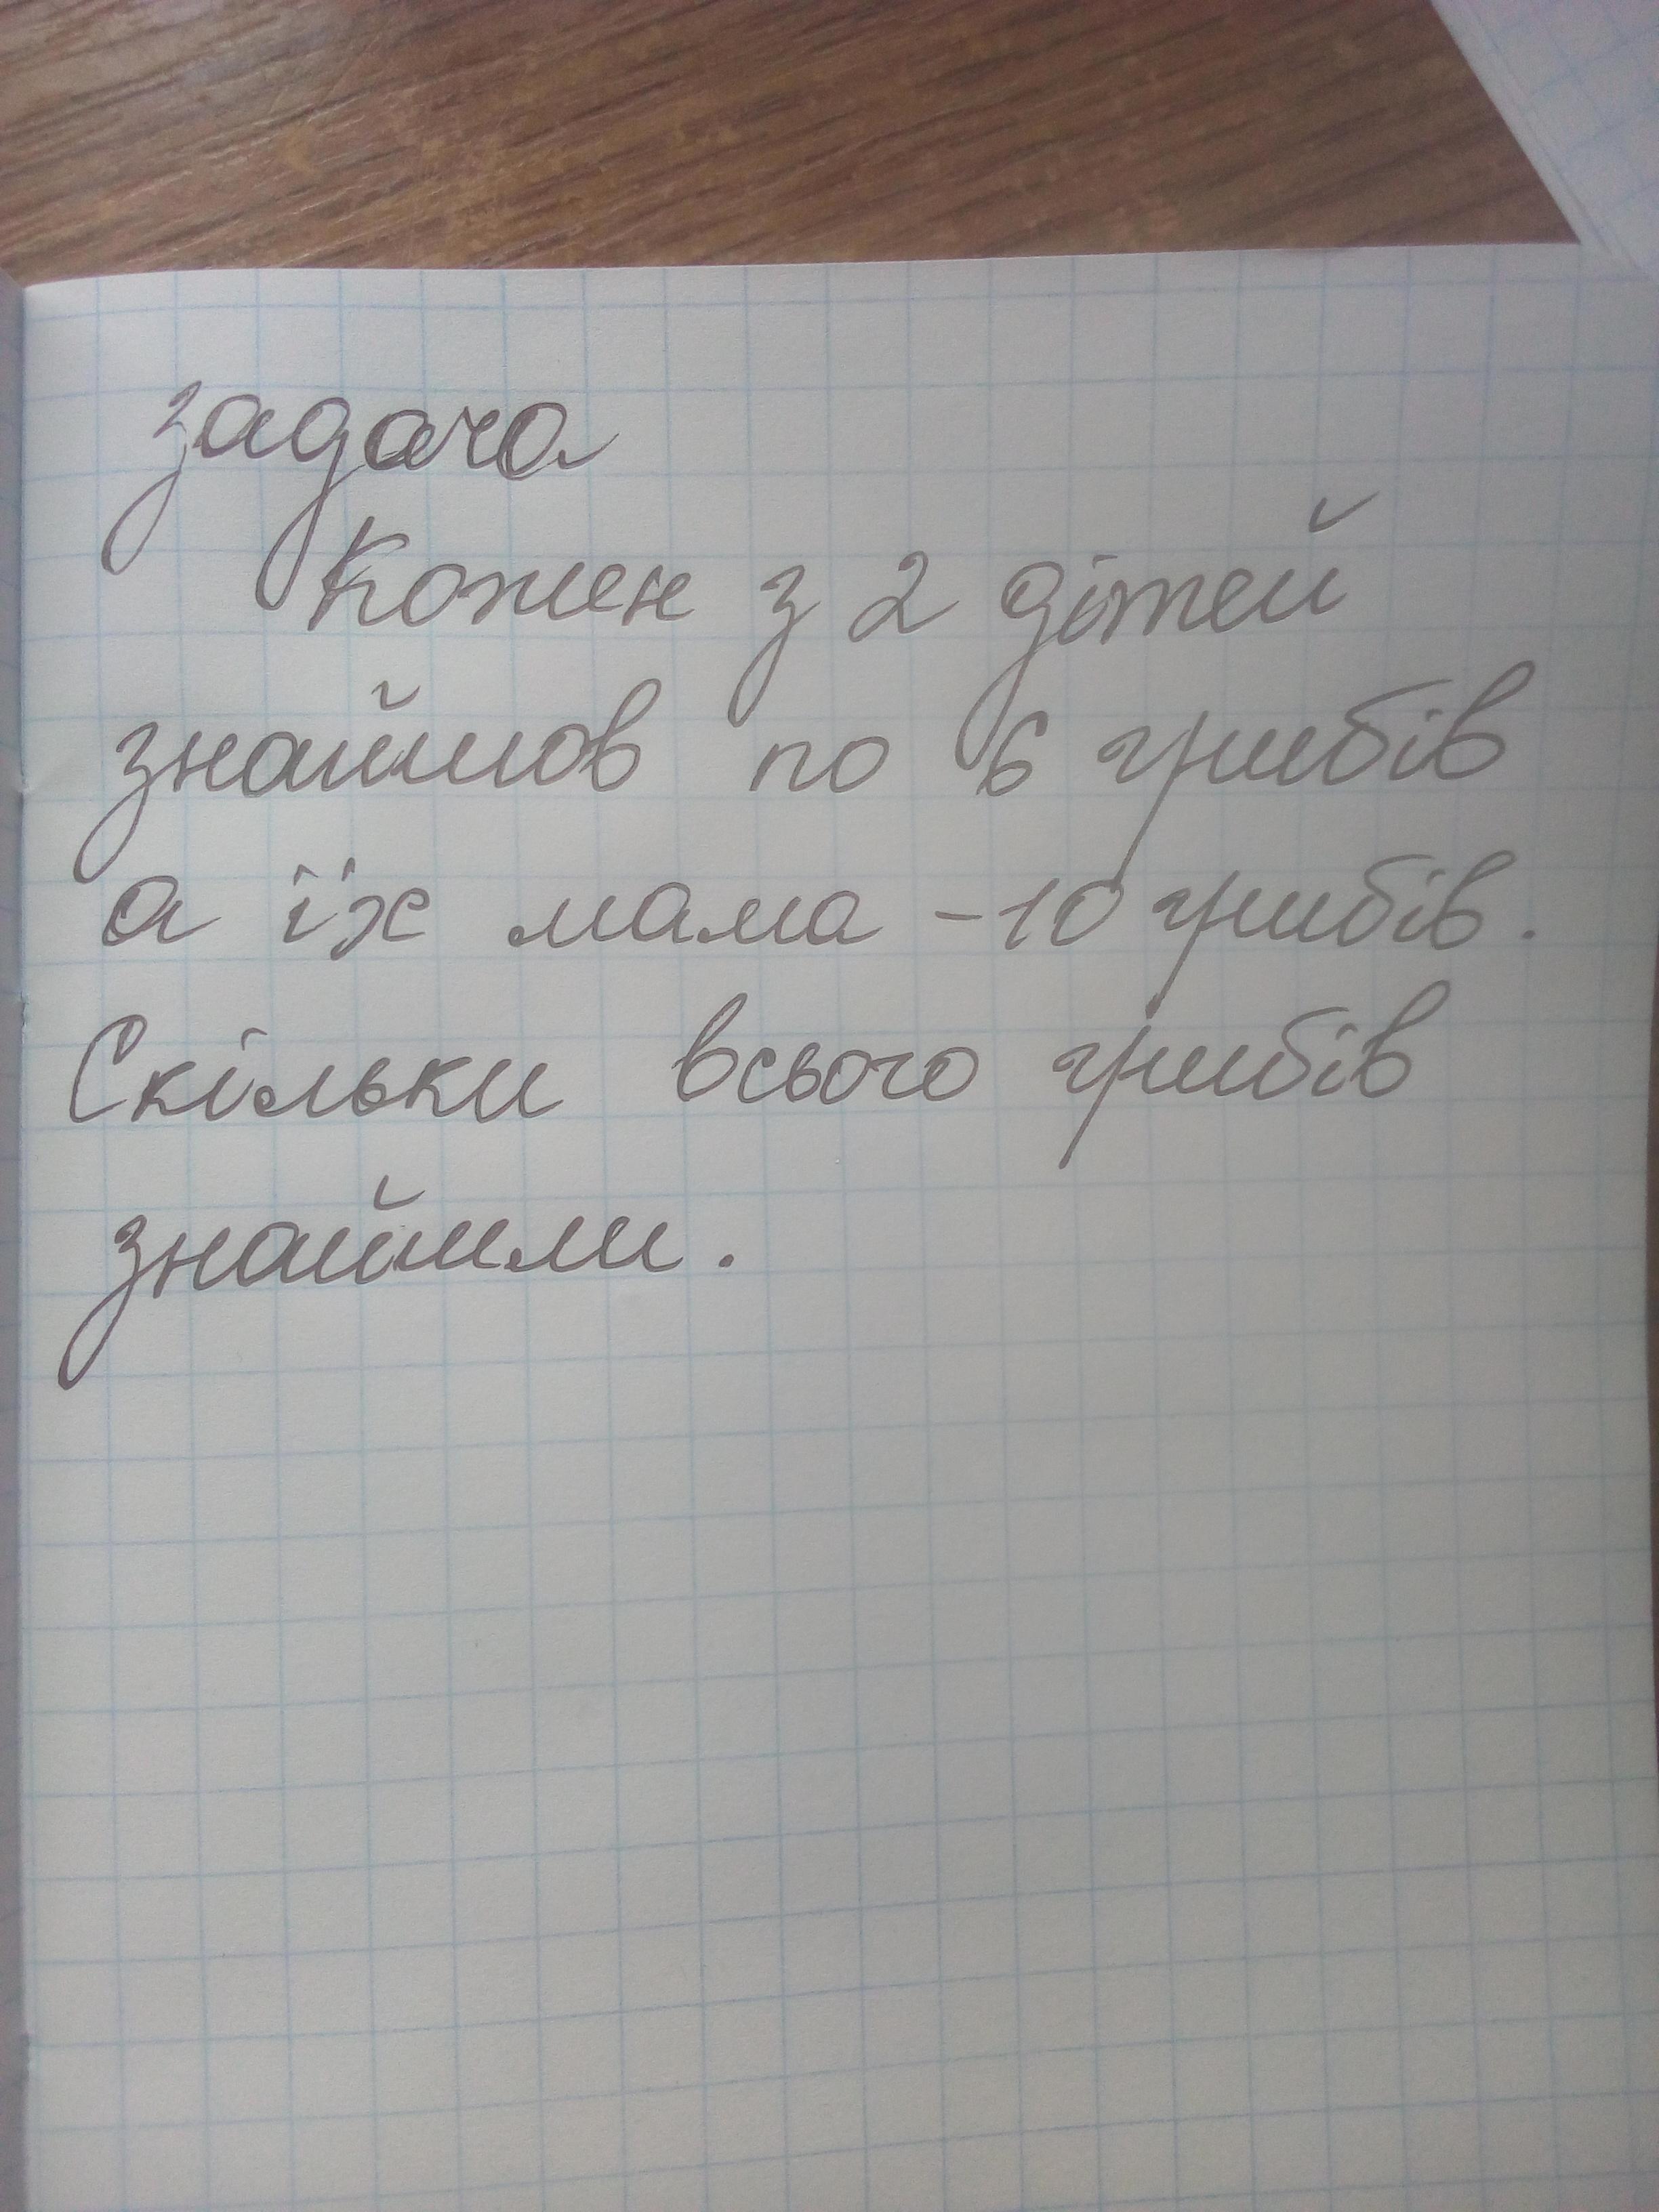 задача
Кожен з 2 дітей
знайшов по 6 грибів
а їх мама - 10 грибів.
Скільки всього грибів
знайшли.